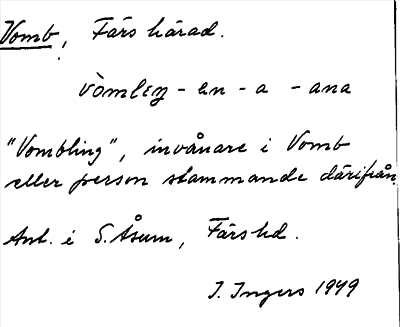 Vomb, Färs härad.
vòmlɩŋ - en - a - ana
"Vombling", invånare i Vomb
eller person stammande därifrån.
Ant. i S. Åsum, Färs hd.
I. Ingers 1949